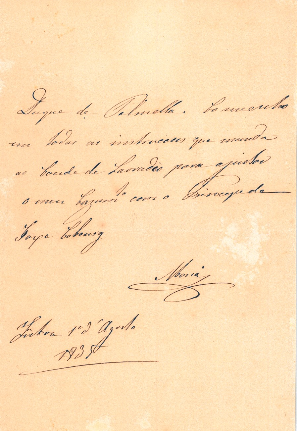 Duque de Palmella. Concordo
em todas as instrucções que manda
ao Conde de Lavradio para ajustar
o meu Cazamto com o Principe de
Saxe Cobourg
Maria
Lisboa 1 d'Agosto
1835